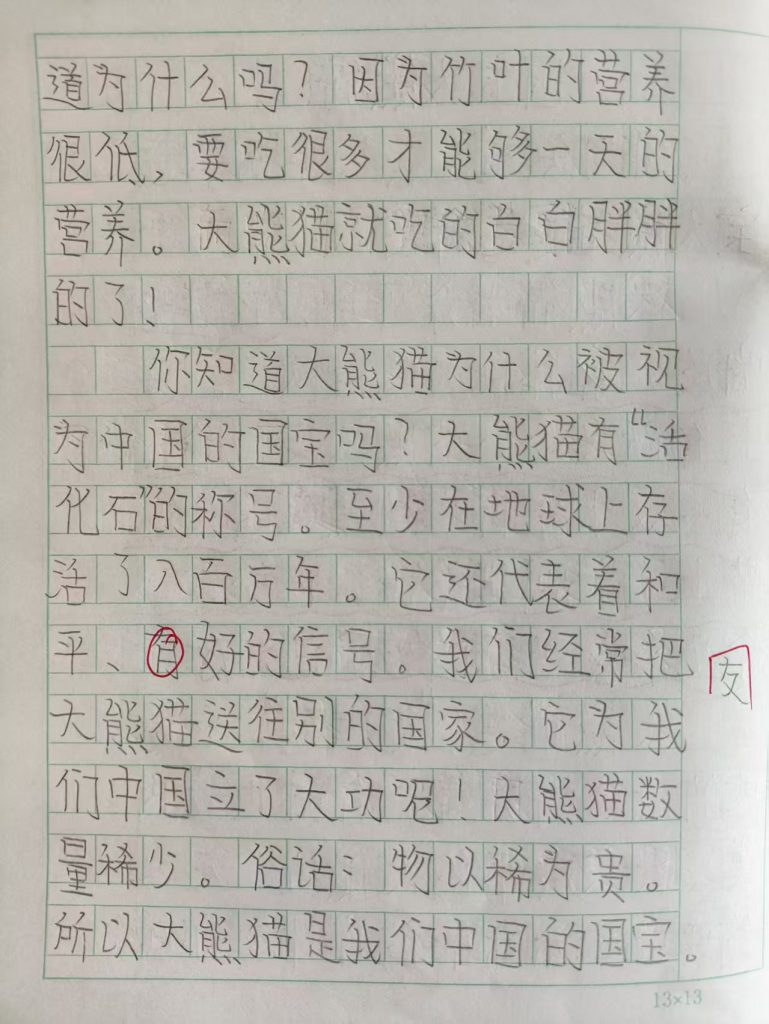 道为什么吗？因为竹叶的营养
很低，要吃很多才能够一天的
营养。大熊猫就吃的白白胖胖
的了！
你知道大熊猫为什么被视
为中国的国宝吗？大熊猫有“活
化石”的称号。至少在地球上存
活了八百万年。它还代表着和
平、有好的信号。我们经常把
友
大熊猫送往别的国家。它为我
们中国立了大功呢！大熊猫数
量稀少。俗话：物以稀为贵。
所以大熊猫是我们中国的国宝。
13×13